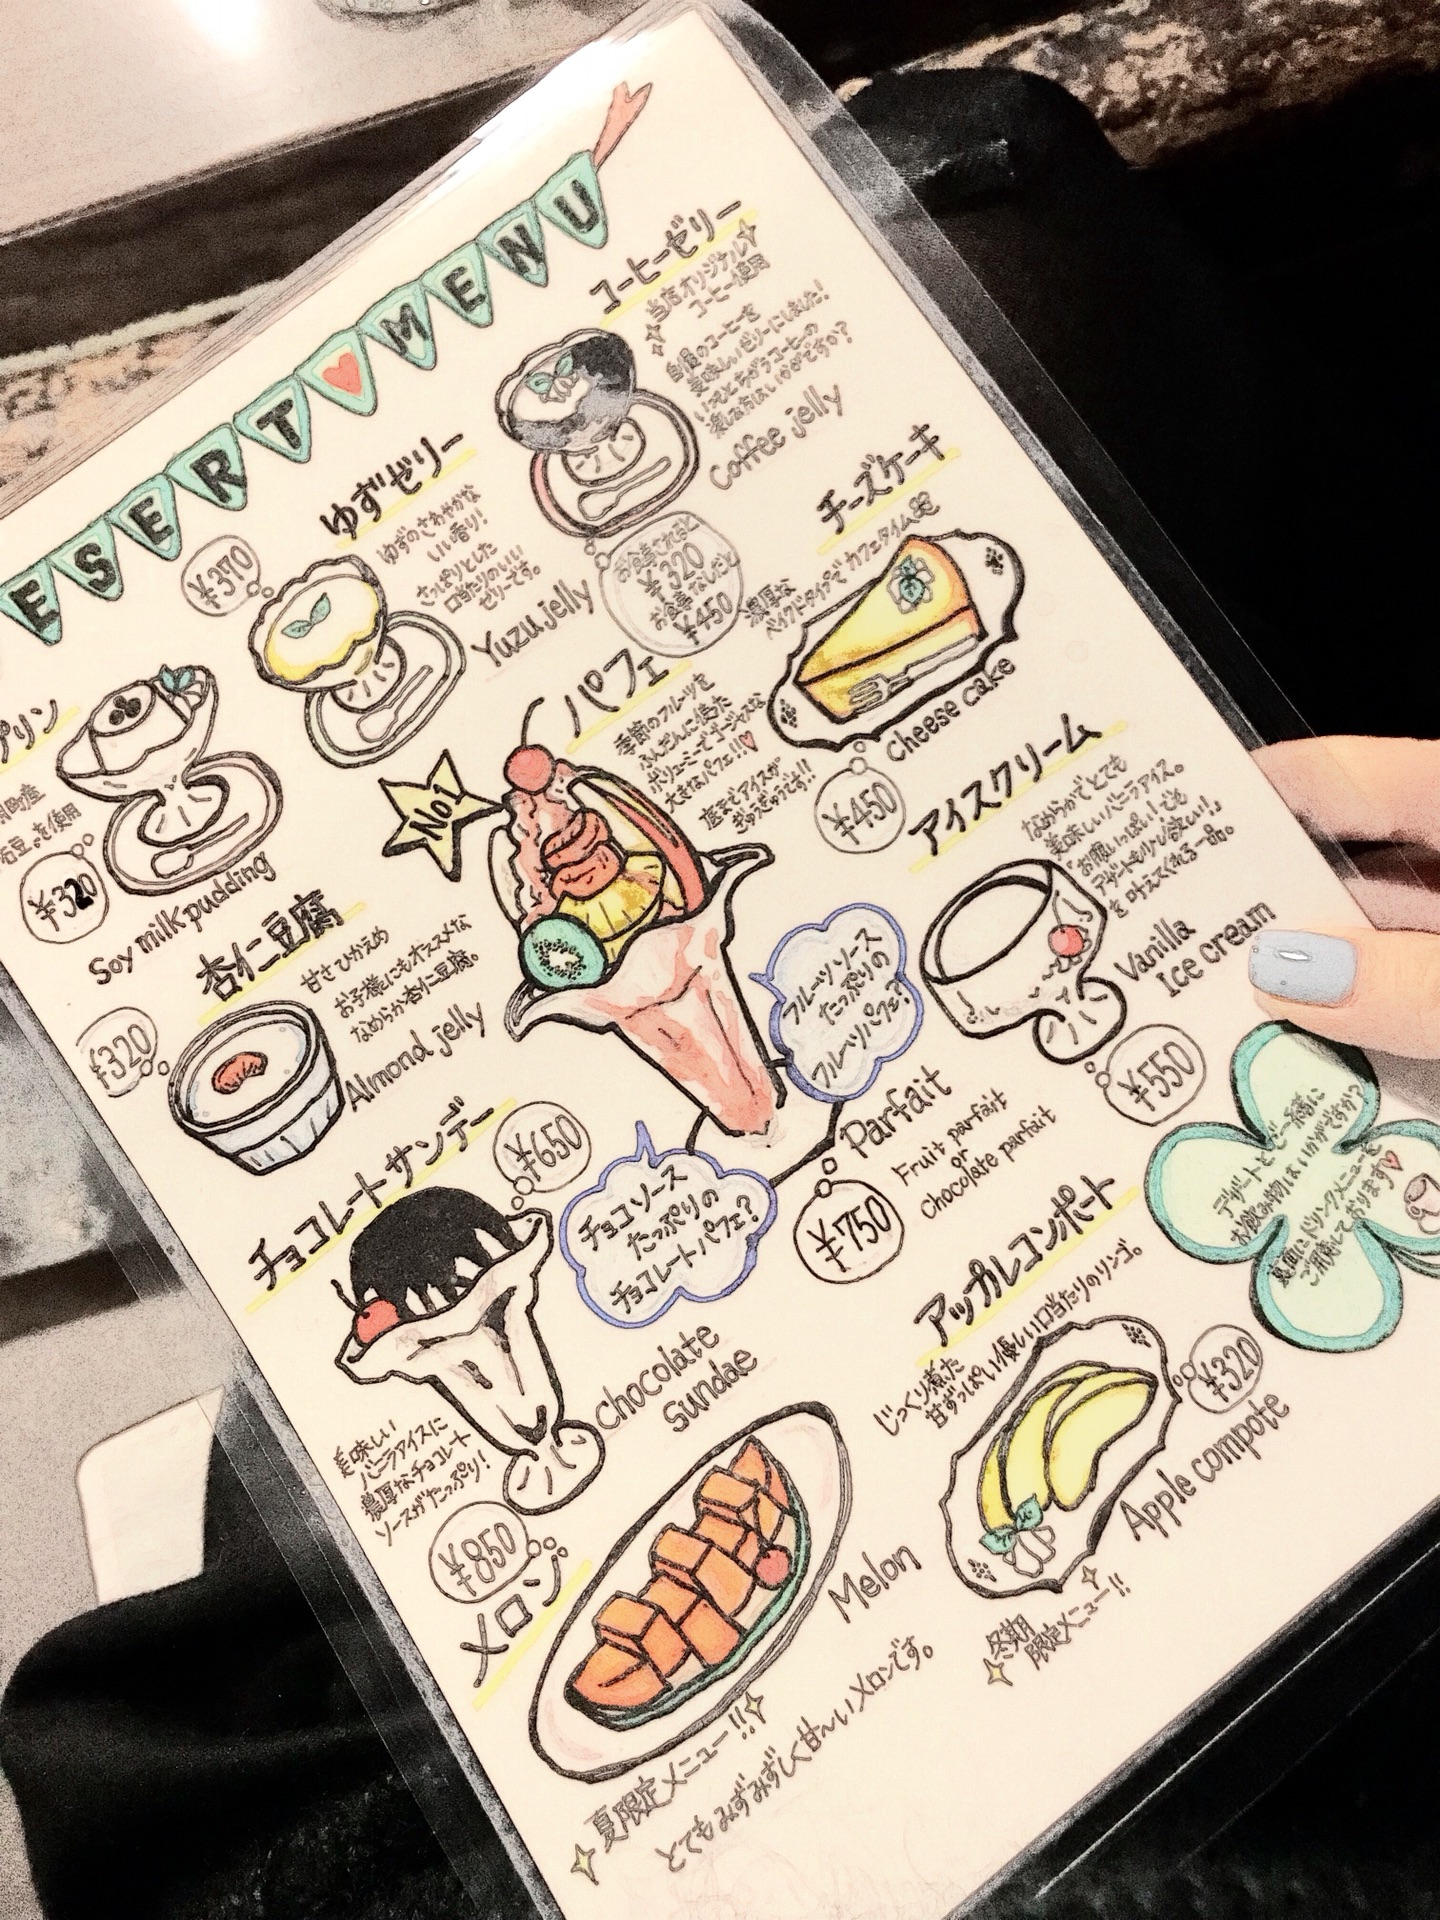 ESERT MENU
コーヒーゼリー
当店オリジナル
コーヒー使用
自慢のコーヒーを
美味しいゼリーにしました!
いつもとちがうコーヒーの
楽しみ方はいかがですか?
Coffee jelly
お食事されると
¥320
お食事なしだと
¥450
ゆずゼリー
ゆずのさわやかな
いい香り!
さっぱりとした
口当たりのいい
ゼリーです。
Yuzu jelly
¥370
チーズケーキ
濃厚な
ベイクドタイプで カフェタイムを
cheese cake
¥450
プリン
を使用
¥320
Soy milk pudding
パフェ
季節のフルーツを
ふんだんに使った
ボリューミーでゴージャスな
大きなパフェ!!!
底までアイスが
ぎゅうぎゅうです!!
No1
フルーツソース
たっぷりの
フルーツパフェ?
チョコソース
たっぷりの
チョコレートパフェ?
Parfait
Fruit parfait
or
chocolate parfait
¥750
アイスクリーム
なめらかでとても
美味しいバニラアイス。
「お腹いっぱい!でも
デザートもツレ欲しい!!」
を叶えてくれる一品。
Vanilla
Ice cream
¥550
杏仁豆腐
甘さひかえめ
お子様にもオススメな
なめらか杏仁豆腐。
Almond jelly
¥320
チョコレートサンデー
¥650
chocolate
sundae
美味しい
バニラアイスに
濃厚なチョコレート
ソースがたっぷり!
デザートとご一緒に
お飲み物はいかがですか?
裏面にドリンクメニューを
ご用意しております
アップルコンポート
じっくり煮た
甘ずっぱい優しい口当たりのリンゴ。
¥320
Apple compote
冬期
限定メニュー!!
メロン
¥850
Melon
夏限定メニュー!!
とてもみずみずしく甘〜いメロンです。